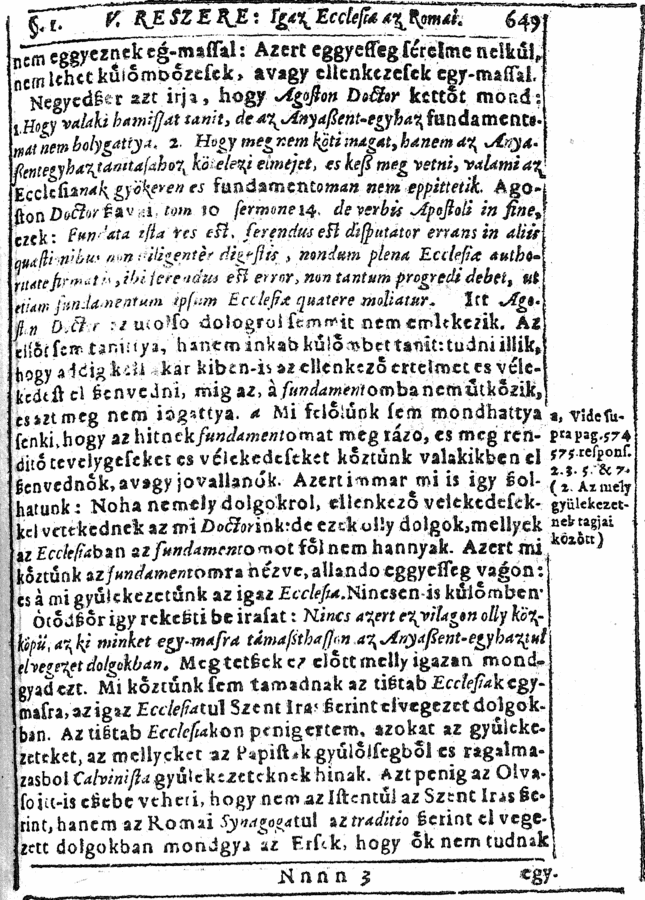 §. 1. V. RESZERE: Igaz Ecclesia az Romai. 649
nem eggyeznek eg-maſſal: Azert eggyeſſeg ſérelme nelkůl,
nem lehet kůlőmbőzeſek, avagy ellenkezeſek egy-maſſal.
Negyedßer azt irja, hogy Agoſton Doctor kettőt mond:
1. Hogy valaki hamiſſat tanit, de az Anyaßent-egyhaz fundamento-
mat nem bolygattya. 2. Hogy meg nem kőti magat, hanem az Anya-
ßentegyhaz tanitaſahoz kőtelezi elmejet, es keſß meg vetni, valami az
Eccleſianak győkeren es fundamentoman nem eppittetik. Ago-
ſton Doctor ßavai, tom 10 ſermone 14. de verbis Apoſtoli in fine,
ezek: Fundata iſta res eſt. ferendus eſt diſputator errans in aliis
quæſtionibus non diligenter digeſtis, nondum plena Eccleſiæ autho-
ritate firmatis, ibi ferendus eſt error, non tantum progredi debet, ut
etiam fundamentum ipſum Eccleſiæ quatere moliatur. Itt Ago-
ſton Doctor az utolſo dologrol ſemmit nem emlekezik. Az
elſőt ſem tanittya, hanem inkab kůlőmbet tanit: tudni illik,
hogy addig kell akar kiben-is az ellenkező ertelmet es véle-
kedeſt el ßenvedni, mig az, à fundamentomba nem ůtkőzik,
es azt meg nem ingattya. a Mi felőlůnk ſem mondhattya
ſenki, hogy az hitnek fundamentomat meg rázo, es meg ren-
ditő tevelygeſeket es vélekedeſeket kőztůnk valakikben el
ßenvednők, avagy jovallanók. Azert immar mi is igy ßol-
hatunk: Noha nemely dolgokrol, ellenkező velekedeſek-
kel vetekednek az mi Doctorink: de ezek olly dolgok, mellyek
az Eccleſiaban az fundamentomot fől nem hannyak. Azert mi
kőztůnk az fundamentomra nézve, allando eggyeſſeg vagon:
es à mi gyůlekezetůnk az igaz Eccleſia. Nincſen-is kůlőmben.
Őtődßőr igy rekeßti be iraſat: Nincs azert ez vilagon olly kőz-
kőpů, az ki minket egy-maſra támaßthaſſon az Anyaßent-egyhaztul
el vegezet dolgokban. Meg tetßek ez előtt melly igazan mond-
gyad ezt. Mi kőztůnk ſem tamadnak az tißtab Eccleſiak egy-
maſra, az igaz Eccleſiatul Szent Iras ßerint el vegezet dolgok-
ban. Az tißtab Eccleſiakon penig ertem, azokat az gyůleke-
zeteket, az mellyeket az Papiſtak gyůlőlſegből es ragalma-
zasbol Calviniſta gyůlekezeteknek hinak. Azt penig az Olva-
ſo itt-is eßebe veheti, hogy nem az Iſtentůl az Szent Iras ße-
rint, hanem az Romai Synagogatul az traditio ßerint el vege-
zett dolgokban mondgya az Erſek, hogy ők nem tudnak
Nnnn 3 egy-
a, Vide ſu-
pra pag. 574
575. reſponſ.
2. 3. 5. & 7.
( 2. Az mely
gyülekezet-
nek tagjai
között )